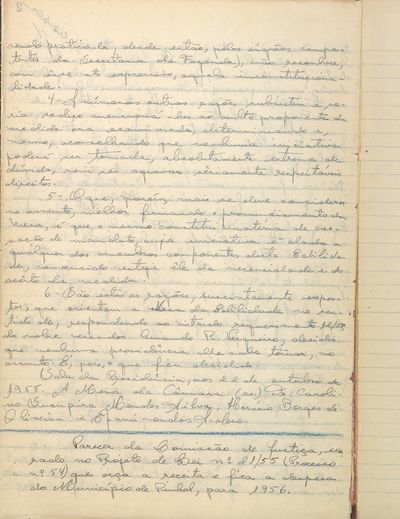 sendo praticada, desde então, pelos órgãos compe-
tentes da Secretaria da Fazenda), não reconhece,
com isso até expressivo, aquela inconstituciona-
lidade.
4 - Inúmeras outras razões, subsistem e se-
ria
medida ora examinada, determinando e,
mesmo, aconselhando que nenhuma iniciativa
poderá ser tomada, absolutamente extreme de
dúvida, sem se agravar seriamente respeitáveis
direitos.
5 - O que, porém, mais se deve considerar
no assunto, melhor firmando o pronunciamento da
Mesa, é que o mesmo constitui matéria de cas-
sação de mandato, cuja iniciativa é dada a
qualquer dos membros componentes desta Edilida-
de, convencido esteja êle da necessidade e do
acêrto da medida.
6 - São estas as razões, sucintamente expos-
tas, que orientam a Mesa da Edilidade no sen-
tido de, respondendo ao citado requerimento
do nobre vereador Amando R. Nogueiro, decidir
que nenhuma providência lhe cabe tomar, no
assunto. É, pois, o que fica decidido.
Sala da Presidência, aos 22 de outubro de
1958. A Mesa da Câmara: (aa.) Dr. Caroli-
no Sucupira, Mendes Silva, Horácio Borges de
Oliveira e Epaminondas
Parecer da Comissão de Justiça, exa-
rado no Projeto de Lei nº 21/55 (Processo
nº 54) que orça a receita e fixa a despesa
do Município de Pinhal, para 1956.